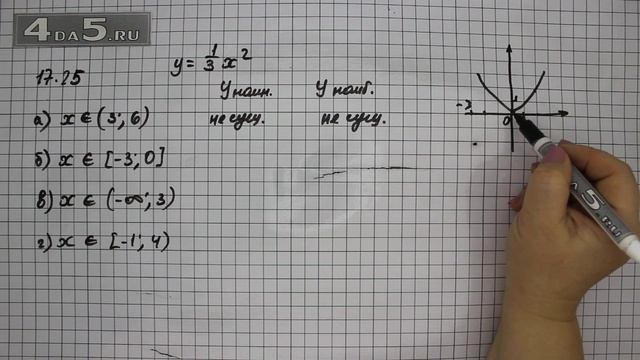 4DA5.RU
17.25
y = 1/3 x²
У наим. У наиб.
а) x ∈ (3; 6) не сущ. не сущ.
б) x ∈ [-3; 0]
в) x ∈ (-∞; 3)
г) x ∈ [-1; 4)
-3
1
0
4DA5.RU